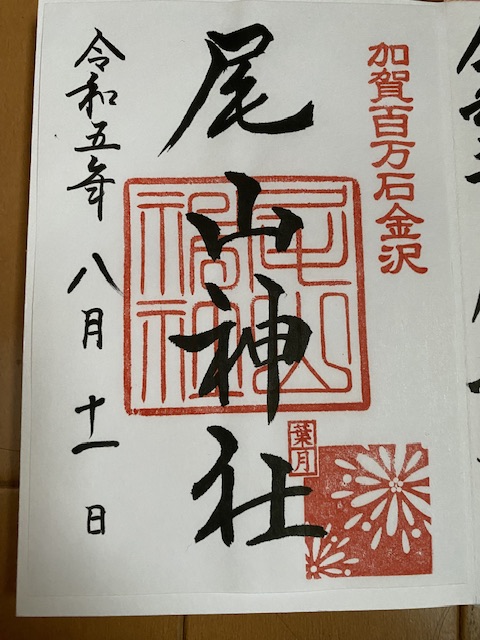 加賀百万石金沢
尾山神社
尾山神社
葉月
令和五年八月十一日